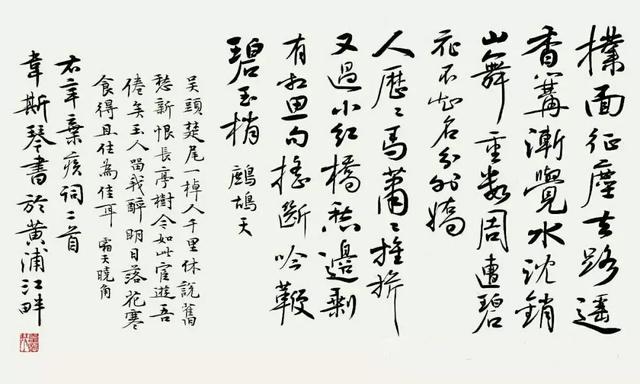 撲面征塵去路遥
香篝漸覺水沈銷
山無重數周遭碧
花不知名分外嬌
人歷〻馬蕭〻旌旗
又過小紅橋愁邊剩
有相思句搖斷吟鞭
碧玉梢 鷓鴣天
吴頭楚尾一棹人千里休説舊
愁新恨長亭樹今如此宦遊吾
倦矣玉人留我醉明日落花寒
食得且住為佳耳 霜天曉角
右辛棄疾詞二首
韋斯琴書於黄浦江畔